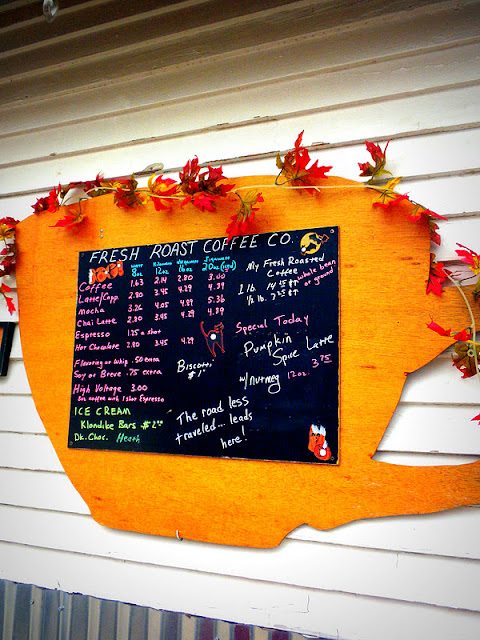 FRESH ROAST COFFEE CO.
8oz 12oz 16oz 20oz (iced)
Coffee 1.63 2.14 2.80 3.00
Latte/Capp 2.80 3.45 4.29 4.89
Mocha 3.26 4.05 4.89 5.36
Chai Latte 2.80 3.45 4.29 4.89
Espresso 1.25 a shot
Hot Chocolate 2.80 3.45 4.29
Flavoring or Whip .50 extra
Soy or Breve .75 extra
High Voltage 3.00
8oz coffee with 1 shot Espresso
ICE CREAM
Klondike Bars $2.00
Dk. Choc. Heath
Biscotti
$1.
The road less
traveled... leads
here!
My Fresh Roasted
Coffee
whole bean
or ground
1 lb.
1/2 lb.
Special Today
Pumpkin
Spice Latte
w/nutmeg 12oz. 3.75